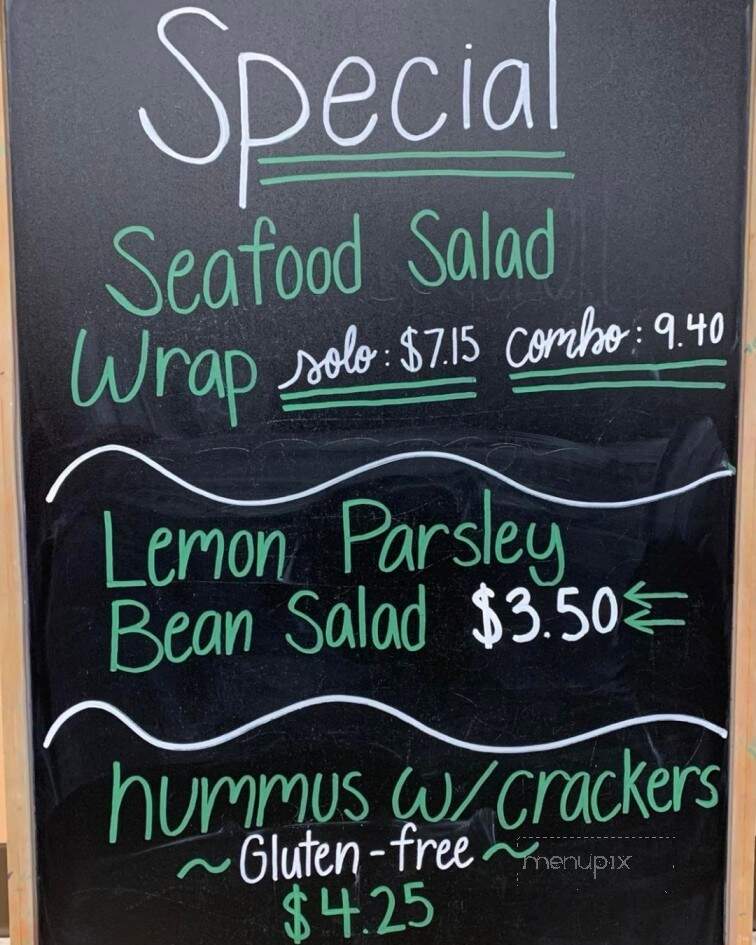 Special
Seafood Salad
Wrap solo: $7.15 combo: 9.40
Lemon Parsley
Bean Salad $3.50
hummus w/crackers
~ Gluten-free ~
menupix
$4.25